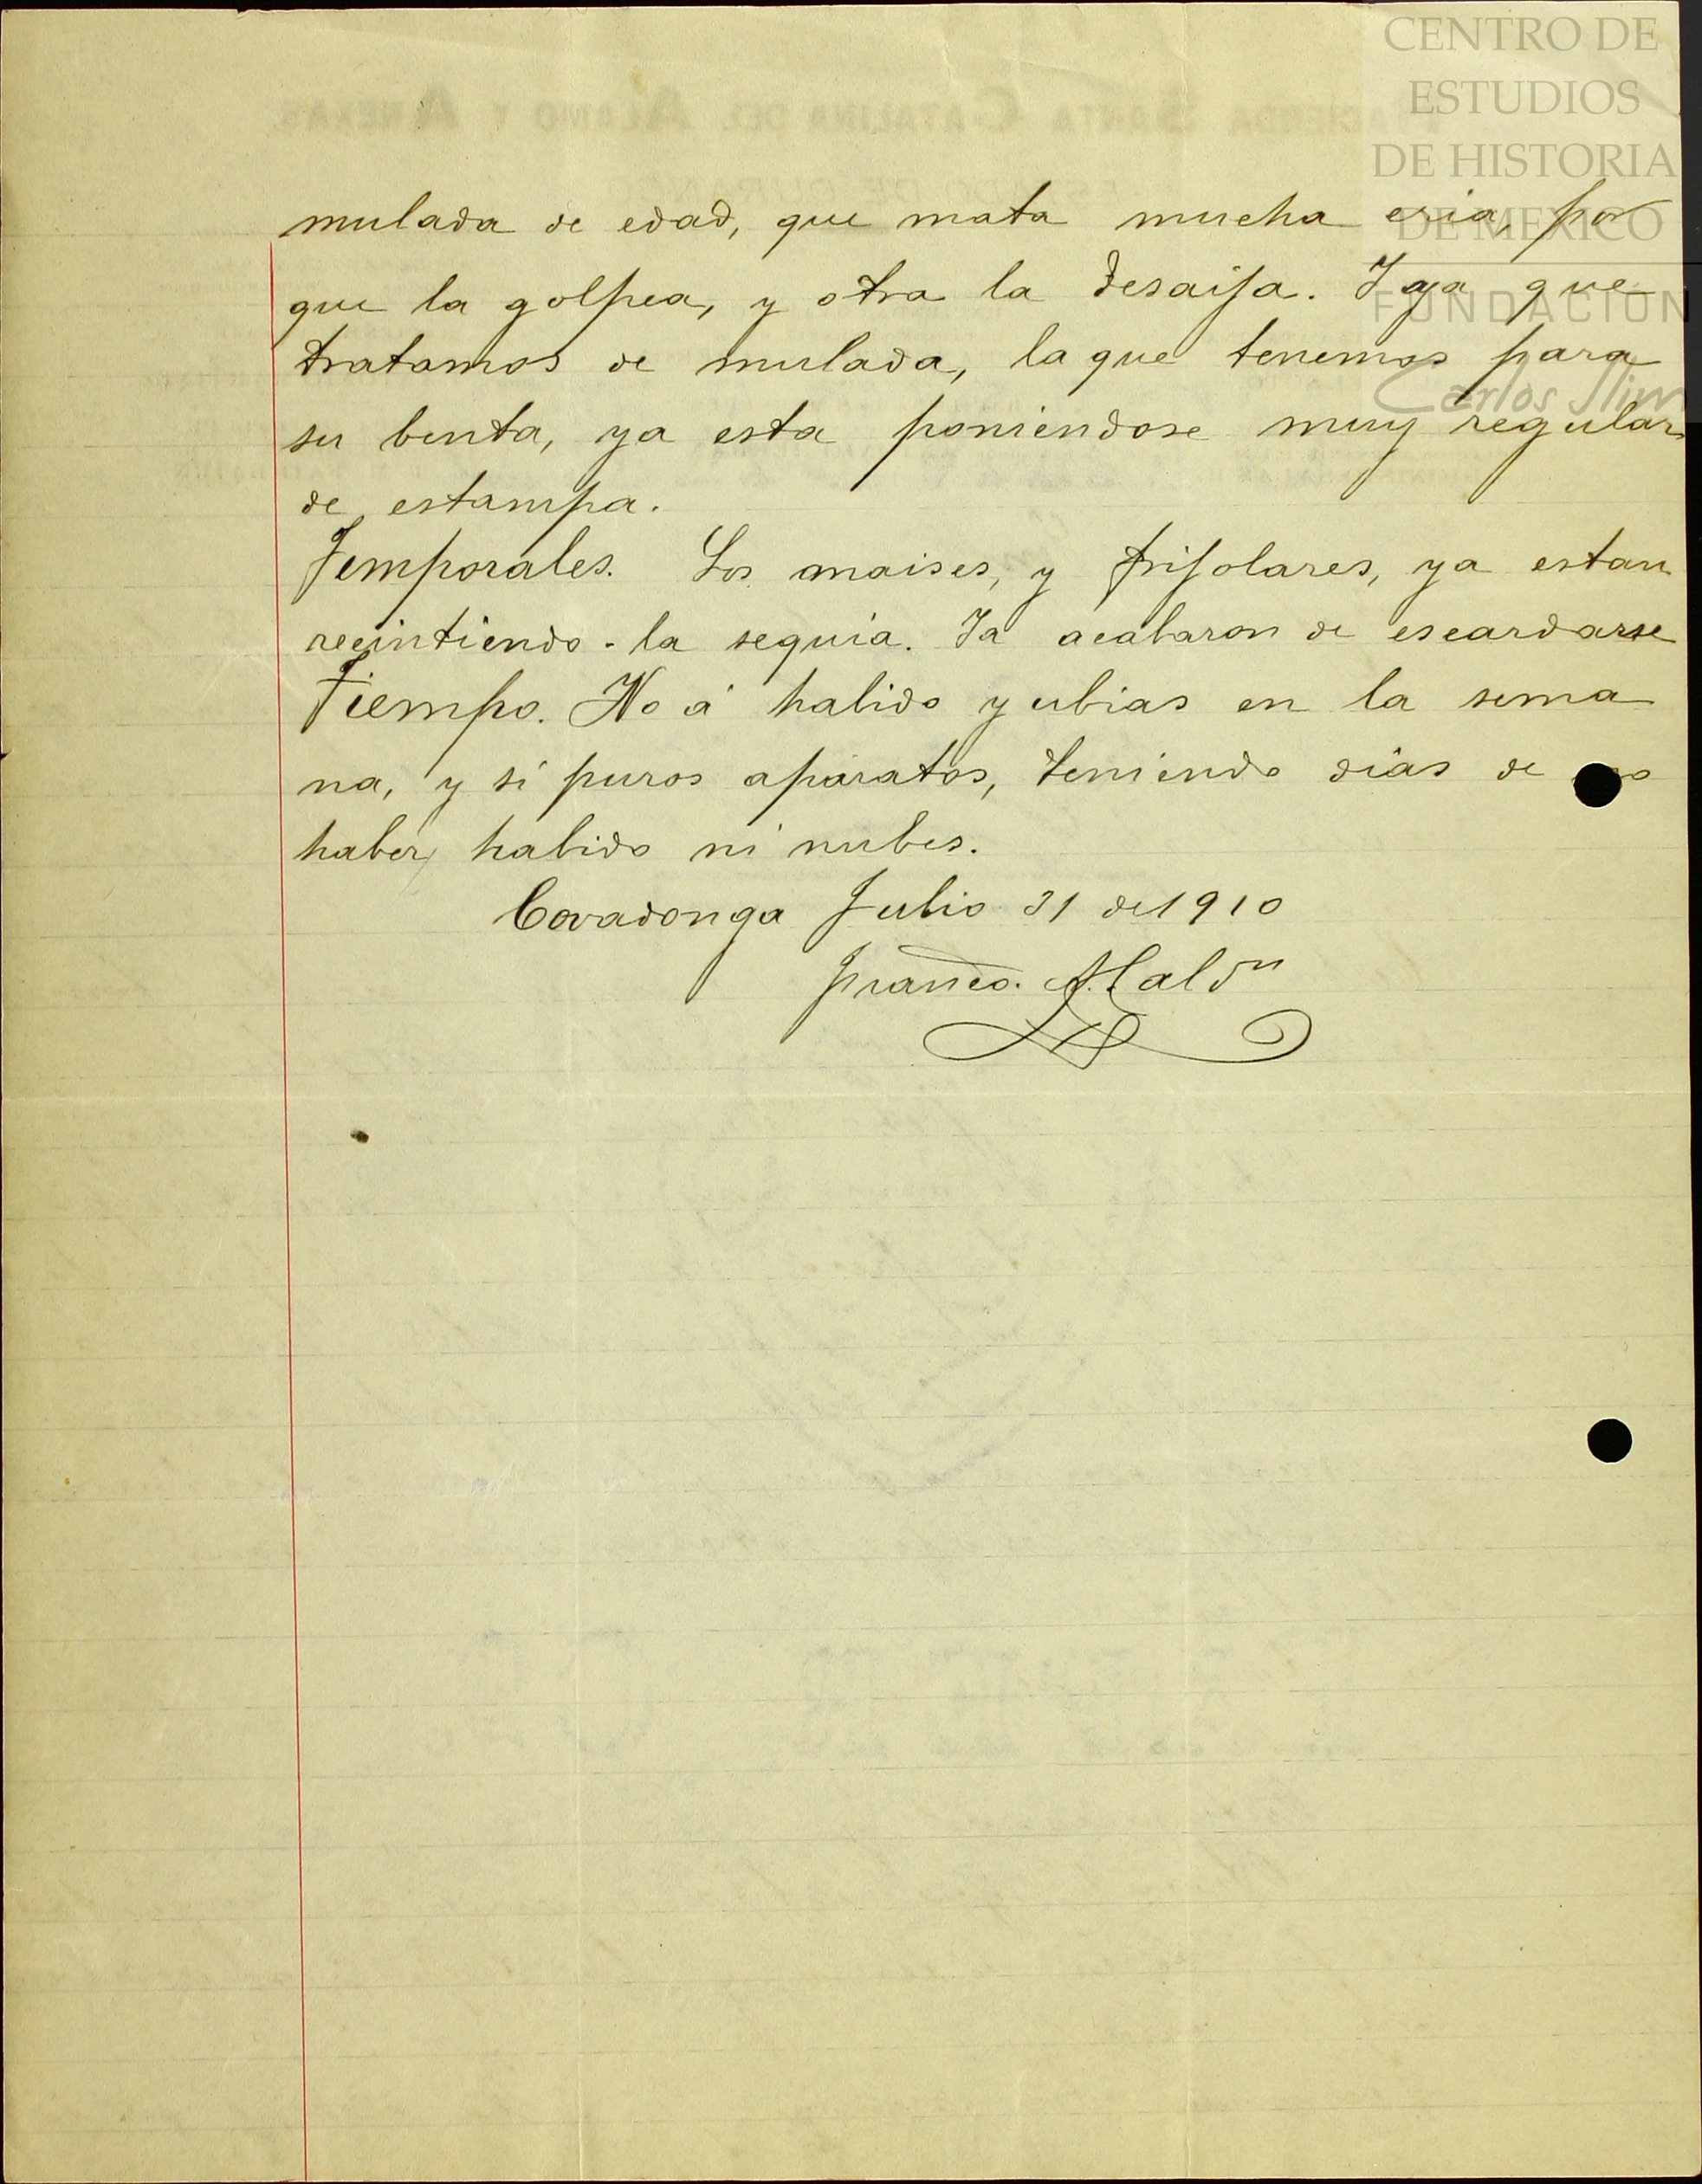 CENTRO DE
ESTUDIOS
DE HISTORIA
DE MEXICO
FUNDACION
Carlos Slim
HACIENDA SANTA CATALINA DEL ALAMO Y ANEXAS
mulada de edad, que mata mucha cria, por
que la golpea, y otra la desaija. Y ya que
tratamos de mulada, la que tenemos para
su benta, ya esta poniendose muy regular
de estampa.
Temporales. Los maises, y frijolares, ya estan
recintiendo la sequia. Ya acabaron de escardarse
Tiempo. No á habido yubias en la sema
na, y sí puros aparatos, teniendo dias de no
haber habido ni nubes.
Covadonga Julio 31 de 1910
Franco.